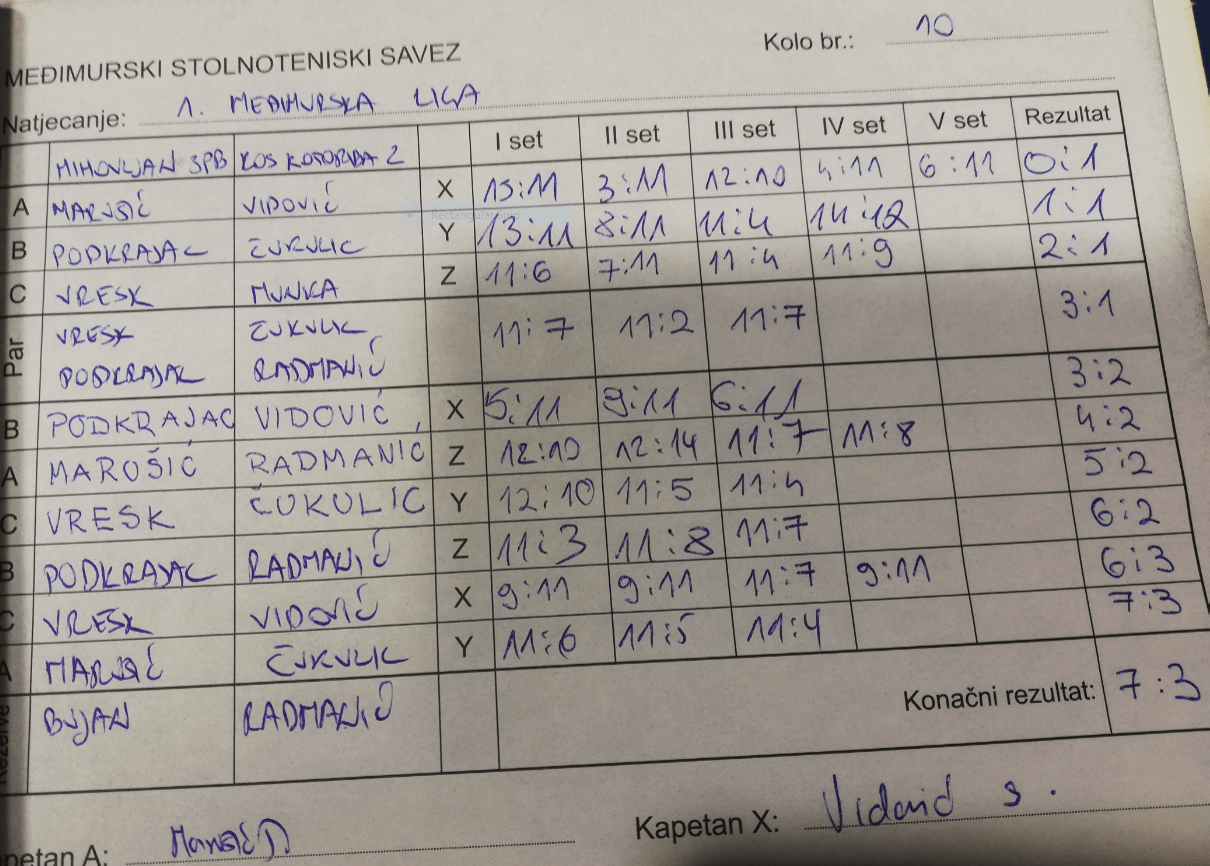 MEĐIMURSKI STOLNOTENISKI SAVEZ Kolo br.: 10
Natjecanje: 1. MEĐIMURSKA LIGA
MIHOVLJAN SPB KOS KOTORIBA 2 I set II set III set IV set V set Rezultat
A MARUŠIĆ VIDOVIĆ X 15:11 3:11 12:10 4:11 6:11 0:1
B PODKRAJAC ČUKULIC Y 13:11 8:11 11:4 14:12 1:1
C VRESK MUNKA Z 11:6 7:11 11:4 11:9 2:1
Par VRESK ČUKULIC 11:7 11:2 11:7 3:1
PODKRAJAC RADMANIĆ
B PODKRAJAC VIDOVIĆ X 5:11 9:11 6:11 3:2
A MAROŠIĆ RADMANIC Z 12:10 12:14 11:7 11:8 4:2
C VRESK ČUKULIC Y 12:10 11:5 11:4 5:2
B PODKRAJAC RADMANIĆ Z 11:3 11:8 11:7 6:2
C VRESK VIDOVIĆ X 9:11 9:11 11:7 9:11 6:3
A MARUŠIĆ ČUKULIC Y 11:6 11:5 11:4 7:3
BUJAN RADMANIĆ Konačni rezultat: 7:3
petan A: Kapetan X: